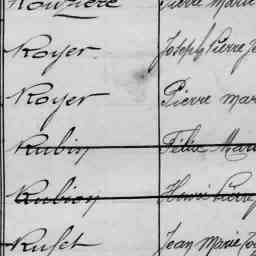 Rouzière Pierre Marie
Royer Joseph Pierre J
Royer Pierre Mar
Rubin Félix Mari
Rubion Henri Pierre
Ruset Jean Marie Jo